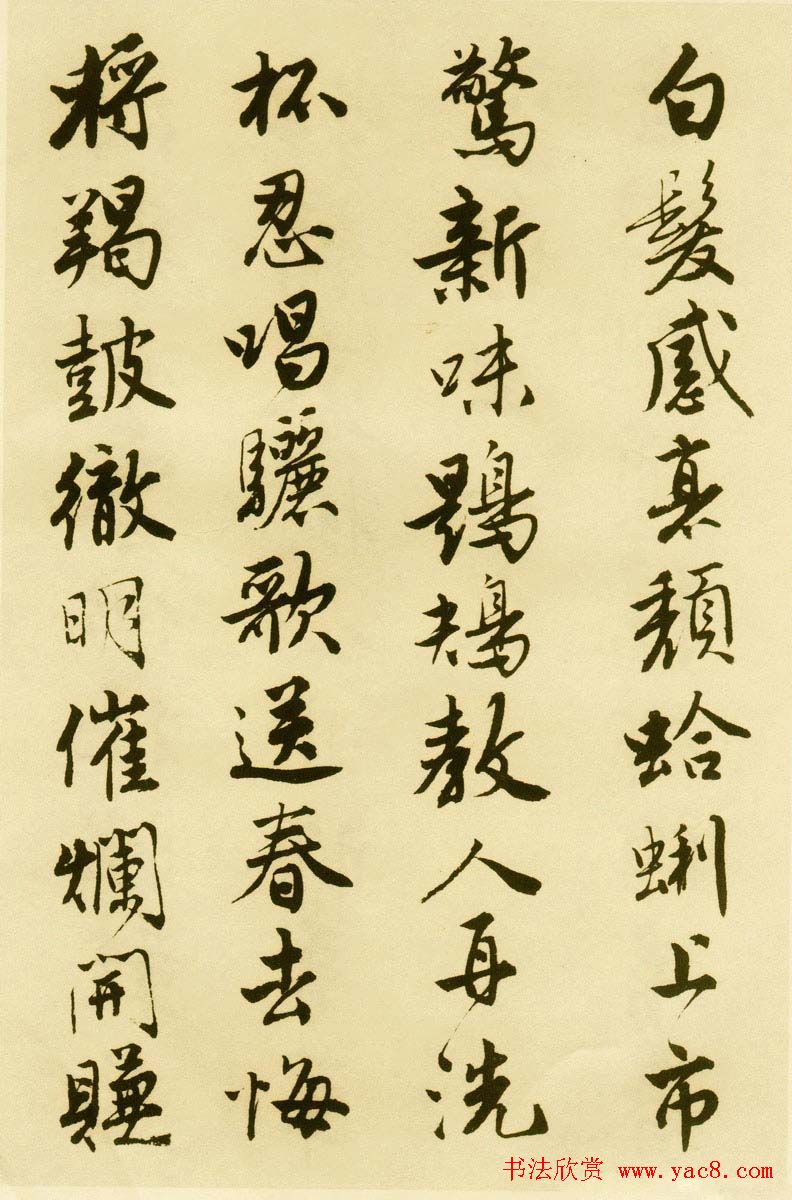 白髮感衰頽蛤蜊上市
驚新味鶗鴂教人再洗
杯忍唱驪歌送春去悔
將羯皷徹明催爛開賺
书法欣赏 www.yac8.com